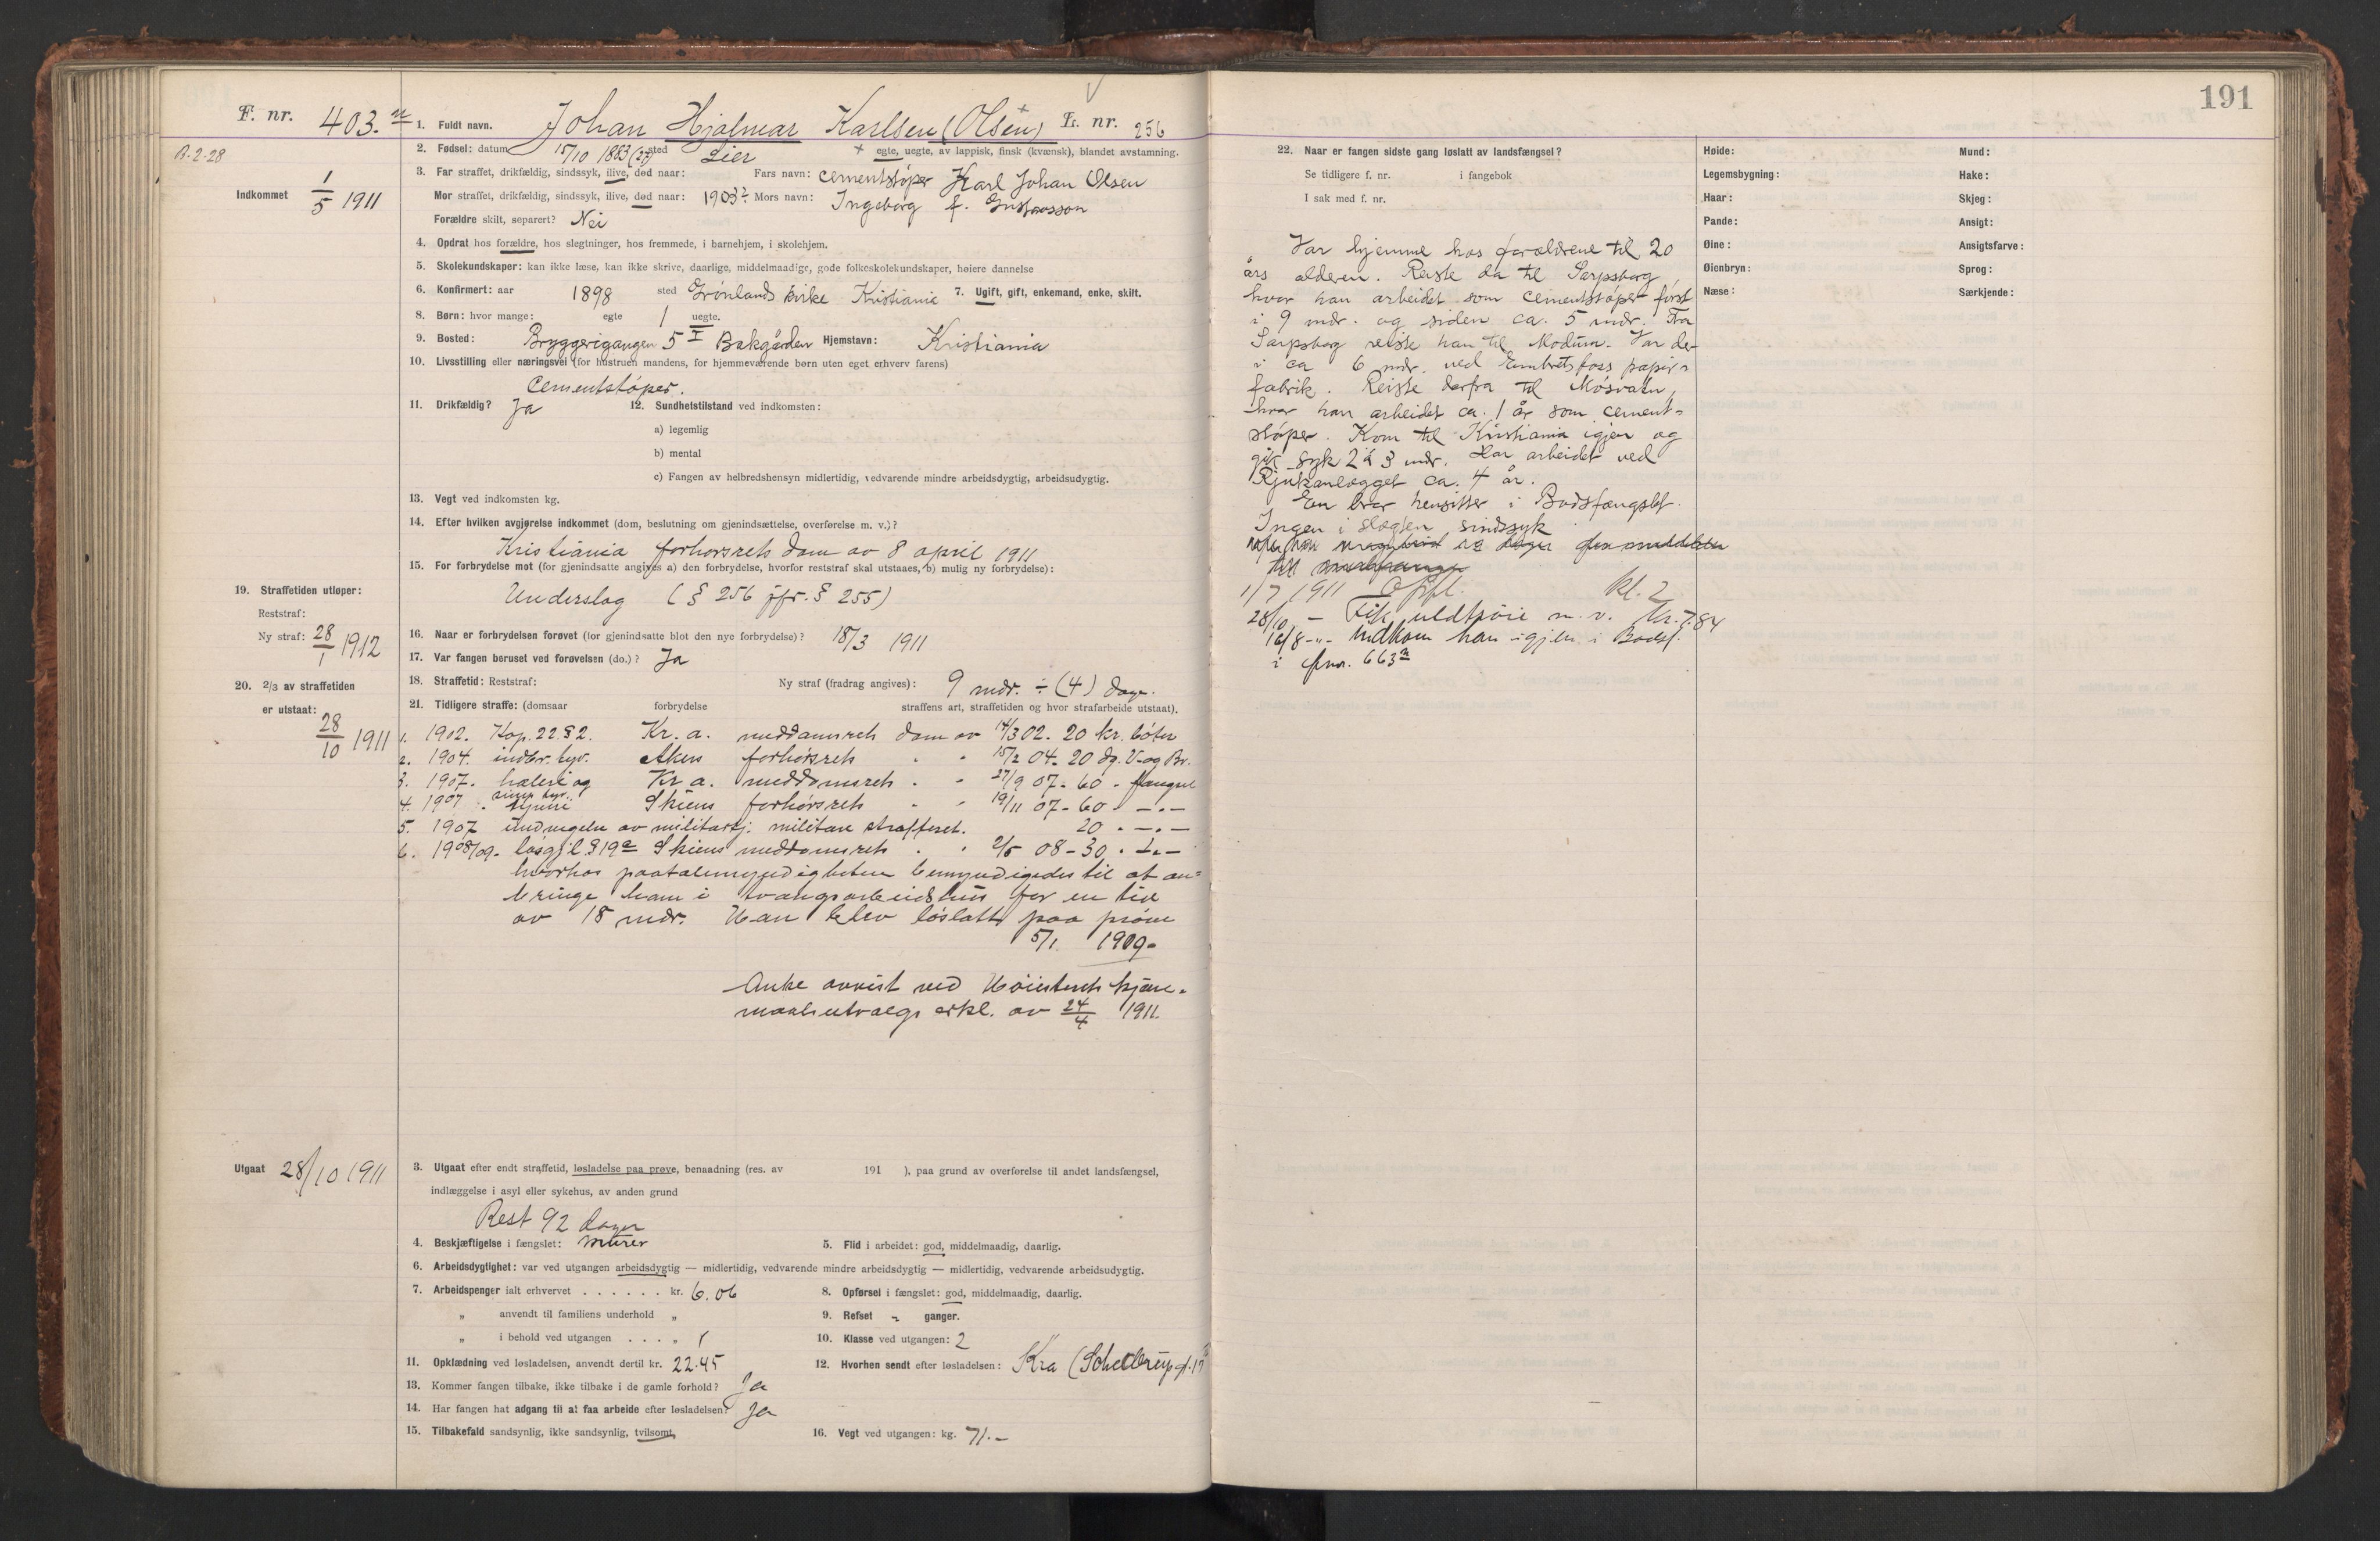 191
F. nr. 403. n
1. Fuldt navn. Johan Hjalmar Karlsen (Olsen) L. nr. 256
B-2-28
2. Fødsel: datum 15/10 1883 (27) sted Lier + egte, uegte, av lappisk, finsk (kvænsk), blandet avstamning.
3. Far straffet, drikfældig, sindssyk, ilive, død naar: Fars navn: Cementstøper Karl Johan Olsen
Indkommet 1/5 1911
Mor straffet, drikfældig, sindssyk, ilive, død naar: 1903? Mors navn: Ingeborg f. Gustavsson
Forældre skilt, separert? Nei
4. Opdrat hos forældre, hos slegtninger, hos fremmede, i barnehjem, i skolehjem.
5. Skolekundskaper: kan ikke læse, kan ikke skrive, daarlige, middelmaadige, gode folkeskolekundskaper, høiere dannelse
6. Konfirmert: aar 1898 sted Grønlands kirke Kristiania 7. Ugift, gift, enkemand, enke, skilt.
8. Børn: hvor mange: egte 1 uegte.
9. Bosted: Bryggerigangen 5 I Bakgården Hjemstavn: Kristiania
10. Livsstilling eller næringsvei (for hustruen mandens, for hjemmeværende børn uten eget erhverv farens)
Cementstøper.
11. Drikfældig? Ja 12. Sundhetstilstand ved indkomsten:
a) legemlig
b) mental
c) Fangen av helbredshensyn midlertidig, vedvarende mindre arbeidsdygtig, arbeidsudygtig.
13. Vegt ved indkomsten kg.
14. Efter hvilken avgjørelse indkommet (dom, beslutning om gjenindsættelse, overførelse m. v.)?
Kristiania forhørsrets dom av 8 april 1911
15. For forbrydelse mot (for gjenindsatte angives a) den forbrydelse, hvorfor reststraf skal utstaaes, b) mulig ny forbrydelse):
Underslag (§ 256 jfr. § 255)
19. Straffetiden utløper:
Reststraf:
Ny straf: 28/1 1912
16. Naar er forbrydelsen forøvet (for gjenindsatte blot den nye forbrydelse)? 18/3 1911
17. Var fangen beruset ved forøvelsen (do.)? Ja
18. Straffetid: Reststraf: Ny straf (fradrag angives): 9 mdr. ÷ (4) dage.
20. 2/3 av straffetiden
er utstaat: 28/10 1911
21. Tidligere straffe: (domsaar forbrydelse straffens art, straffetiden og hvor strafarbeide utstaat).
1. 1902. Kap. 22 § 2. Kr. a. meddomsrets dom av 14/3 02. 20 kr. bøter
2. 1904. indbr. tyv. Akers forhørsrets " " 15/2 04. 20 dg. V. og Br.
3. 1907. heleri og Kr. a. meddomsrets " " 27/9 07 - 60 - fængsel
simp tyv.
4. 1907 " tyveri Skiens forhørsrets " " 19/11 07 - 60 - — " —
5. 1907 undragelse av militærtj. militære strafferet. 20 " — " —
6. 1908/09. løsgjl § 19 a Skiens meddomsrets " " 2/5 08 - 30 " — " —
hvorhos paatalemyndigheten bemyndigedes til at an=
bringe ham i tvangsarbeidshus for en tid
av 18 mdr. Han blev løslatt paa prøve
5/1. 1909.
Anke avvist ved Høiesterets kjære-
maalsutvalgs erkl. av 24/4 1911.
Utgaat 28/10 1911
3. Utgaat efter endt straffetid, løsladelse paa prøve, benaadning (res. av 191 ), paa grund av overførelse til andet landsfængsel,
indlæggelse i asyl eller sykehus, av anden grund
Rest 92 dager
4. Beskjæftigelse i fængslet: murer 5. Flid i arbeidet: god, middelmaadig, daarlig.
6. Arbeidsdygtighet: var ved utgangen arbeidsdygtig — midlertidig, vedvarende mindre arbeidsdygtig — midlertidig, vedvarende arbeidsudygtig.
7. Arbeidspenger ialt erhvervet . . . . . . kr. 6.06 8. Opførsel i fængslet: god, middelmaadig, daarlig.
" anvendt til familiens underhold " 9. Refset - ganger.
" i behold ved utgangen . . . " 10. Klasse ved utgangen: 2
11. Opklædning ved løsladelsen, anvendt dertil kr. 22.45 12. Hvorhen sendt efter løsladelsen: Kra (Schellerup
13. Kommer fangen tilbake, ikke tilbake i de gamle forhold? Ja
14. Har fangen hat adgang til at faa arbeide efter løsladelsen? Ja
15. Tilbakefald sandsynlig, ikke sandsynlig, tvilsomt 16. Vegt ved utgangen: kg. 71.-
22. Naar er fangen sidste gang løslatt av landsfængsel?
Se tidligere f. nr. i fangebok
I sak med f. nr.
Var hjemme hos forældrene til 20
års alderen. Reiste da til Sarpsborg
hvor han arbeidet som cementstøper først
i 9 mdr. og siden ca. 5 mdr. Fra
Sarpsborg reiste han til Modum. Var der
i ca 6 mdr. ved Embretsfoss papir=
fabrik. Reiste derfra til Møsvatn,
hvor han arbeidet ca. 1 år som cement=
støper. Kom til Kristiania igjen og
gik syk 2 á 3 mdr. Har arbeidet ved
Rjukanlægget ca. 4 år.
En bror hensitter i Bodsfængslet.
Ingen i slægten sindssyk
1/7 1911 Opfl. kl. 2
28/10 - Fik uldtrøie m. v. kr. 7.84
16/8 - " - indkom han igjen i Bodsf.
i fnr. 663 n
Høide: Mund:
Legemsbygning: Hake:
Haar: Skjeg:
Pande: Ansigt:
Øine: Ansigtsfarve:
Øienbryn: Sprog:
Næse: Særkjende: